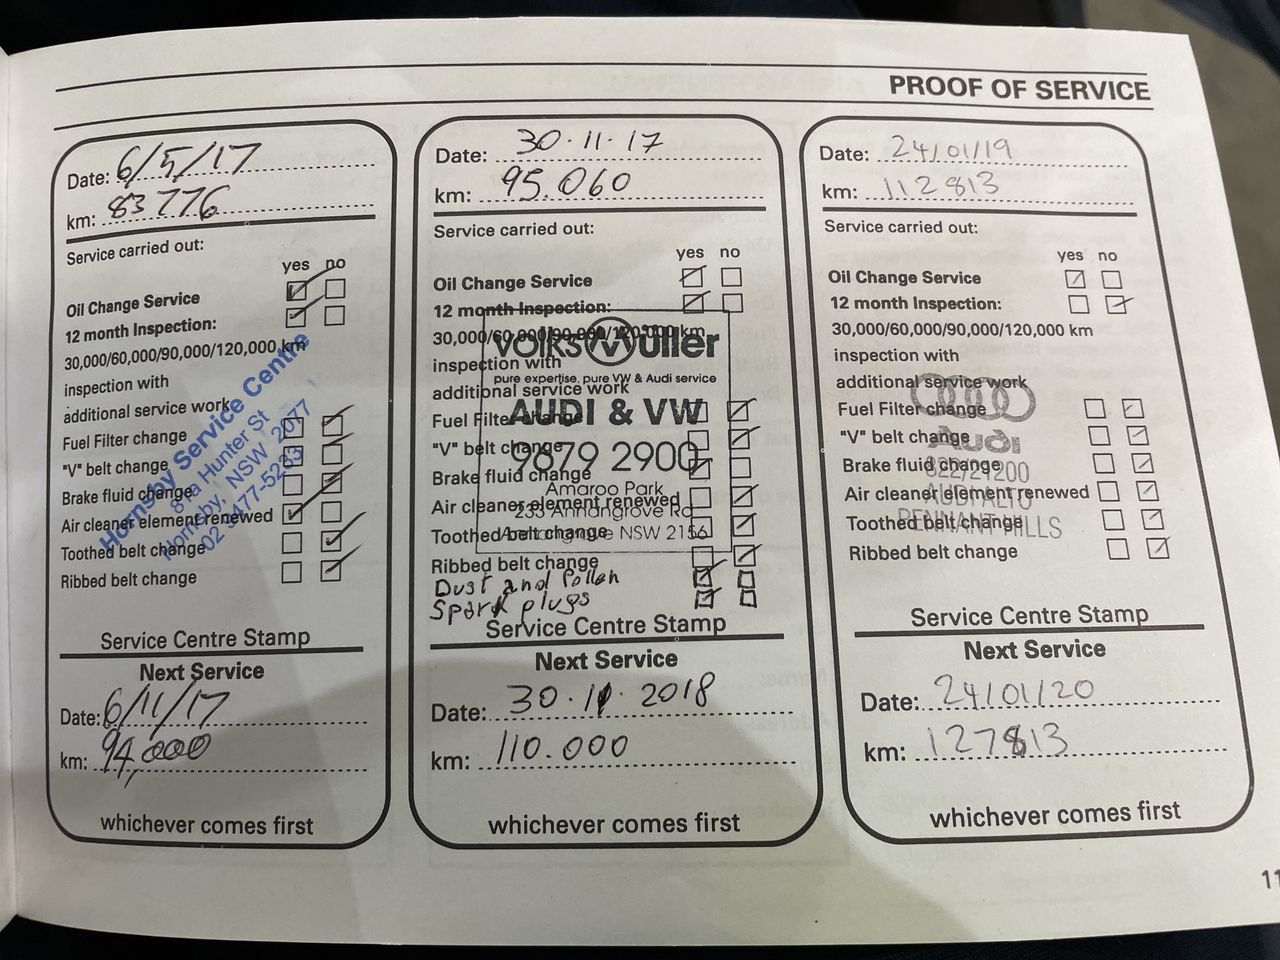 PROOF OF SERVICE
Date: 6/5/17
km: 83776
Service carried out:
yes no
Oil Change Service
12 month Inspection:
30,000/60,000/90,000/120,000 km
inspection with
additional service work
Fuel Filter change
"V" belt change
Brake fluid change
Air cleaner element renewed
Toothed belt change
Ribbed belt change
Hornsby Service Centre
Hunter St
Hornsby, NSW 2077
Service Centre Stamp
Next Service
Date: 6/11/17
km: 94,000
whichever comes first
Date: 30.11.17
km: 95.060
Service carried out:
yes no
Oil Change Service
12 month Inspection:
30,000/60,000/90,000/120,000 km
inspection with
additional service work
Fuel Filter change
"V" belt change
Brake fluid change
Air cleaner element renewed
Toothed belt change
Ribbed belt change
Dust and Pollen
Spark plugs
VOLKSMüller
pure expertise, pure VW & Audi service
AUDI & VW
9879 2900
Amaroo Park
Annangrove Rd
Annangrove NSW 2156
Service Centre Stamp
Next Service
Date: 30.11.2018
km: 110.000
whichever comes first
Date: 24/01/19
km: 112813
Service carried out:
yes no
Oil Change Service
12 month Inspection:
30,000/60,000/90,000/120,000 km
inspection with
additional service work
Fuel Filter change
"V" belt change
Brake fluid change
Air cleaner element renewed
Toothed belt change
Ribbed belt change
Audi
PENNANT HILLS
Service Centre Stamp
Next Service
Date: 24/01/20
km: 127813
whichever comes first
11